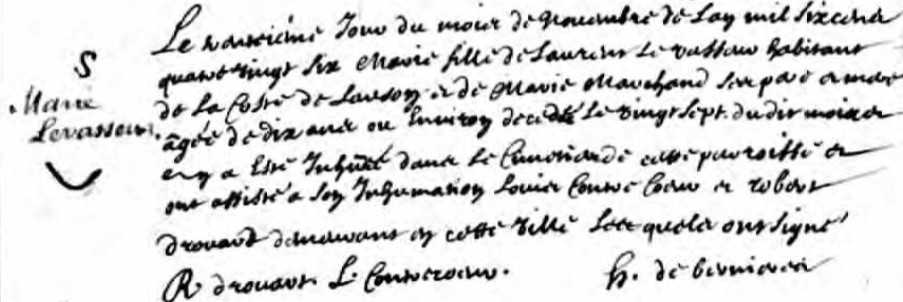 S
Marie
Levasseur
Le trentième Jour du mois de novembre de L'an mil Six cens
quatre vingt Six Marie fille de Laurens Le vasseur habitant
de La Coste de Lauson et de Marie Marchand Ses pere et mere
âgée de dix ans ou Environ decedée Le vingt sept. du dit mois et
an a Esté Inhumée dans Le Cimetiere de cette parroisse et
ont assisté a Son Inhumation Louis et robert
drouart demeurans en cette ville Lesquels ont Signé
R drouart. L. h. de bernieres